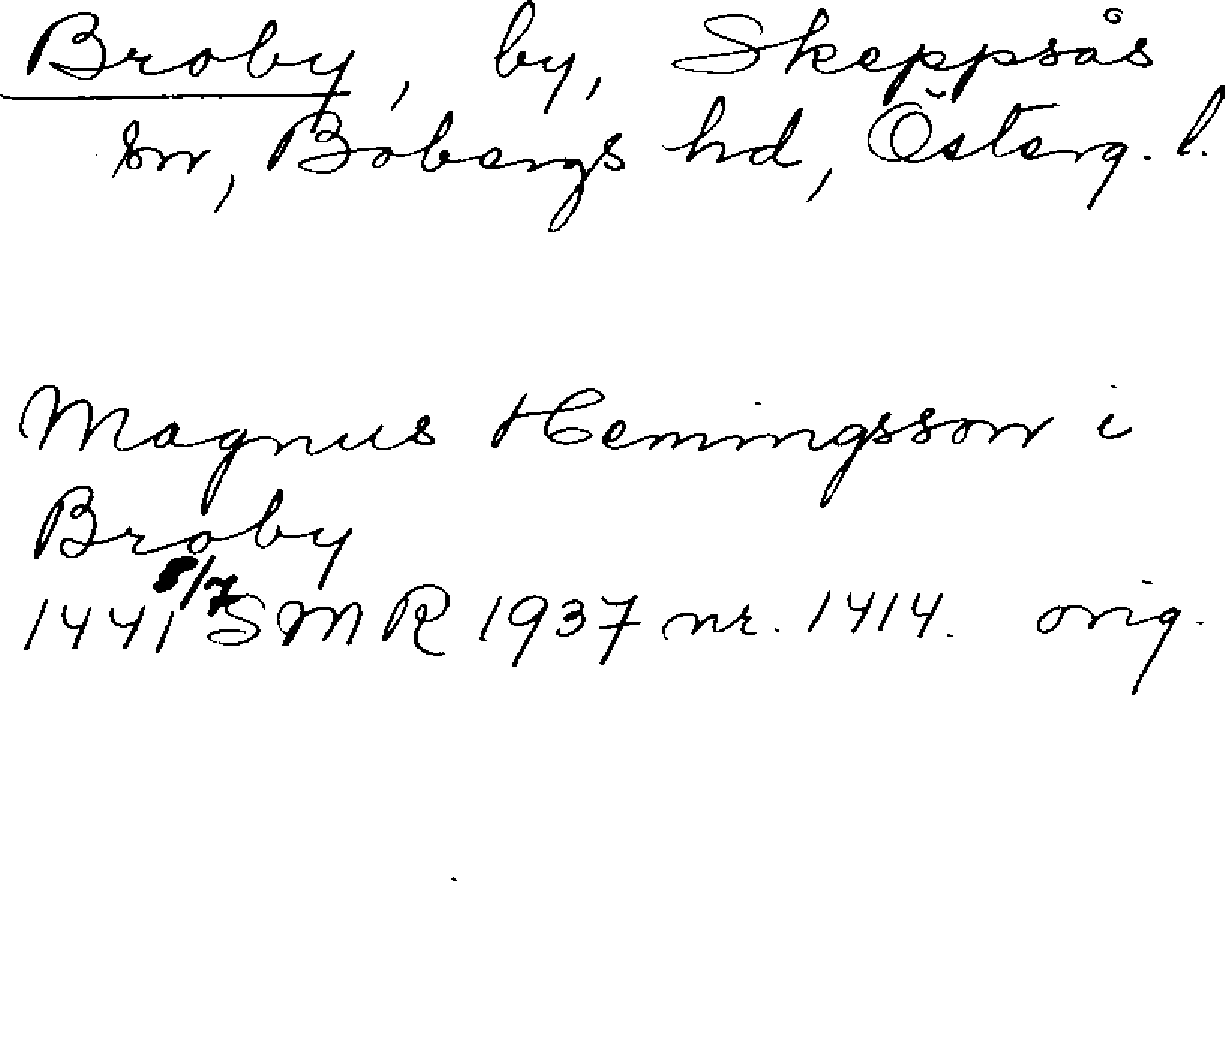 Broby, by, Skeppsås
sn, Bobergs hd, Österg. l.
Magnus Hemingsson i
Broby
1441 8/7 SMR 1937 nr. 1414. orig.